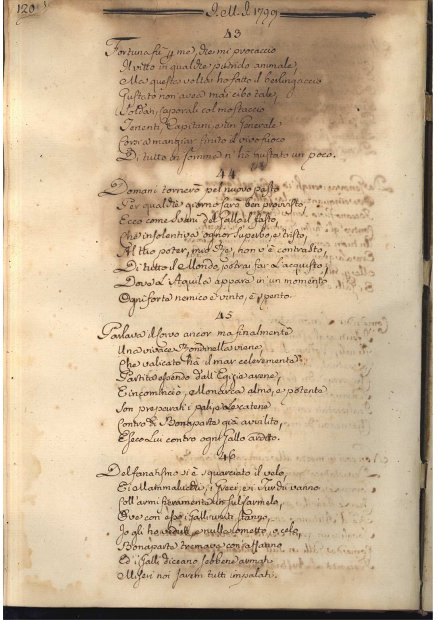 120
I. M. I. 1799
43
Fortuna fù p me, diei mi procaccio
Il vitto in qualche putrido animale,
Ma questa volta hò fatto il berlingaccio
Gustato non avea mai cibo tale,
Soldati, caporali col mostaccio
Tenenti, Capitani, e un Generale
Di tutto in somma n'hò gustato un poco.
44
Domani tornerò pel nuovo pasto
Per qualche giorno sarò ben provvisto,
Ecco come del Gallo il fasto,
Che insolentiva ognor superbo, e tristo,
Al tuo poter, mio Rè, non v'è contrasto,
Di tutto il Mondo potrai far l'acquisto,
Dove l'Aquila appara in un momento
Ogni forte nemico è vinto, e spento.
45
Parlava il Corvo ancor ma finalmente
Una vivace Rondinella viene,
Che valicato hà il mar celeremente
Partita essendo dall'Egizie arene,
E incominciò, Monarca almo, e potente
Son preparati i pali, e le catene
Contro di Bonaparte già avvilito,
E seco Lui contro ogni Gallo ardito.
46
Del fanatismo si è squarciato il velo,
i Greci, ed i Turchi vanno
Coll'armi fieramente
Ove con essi i Galli uniti stanno,
Io gli hò veduti, e nulla ometto, o celo,
Bonaparte tremava con affanno
Ed i Galli diceano sebbene armati
Miseri noi sarem tutti impalati.